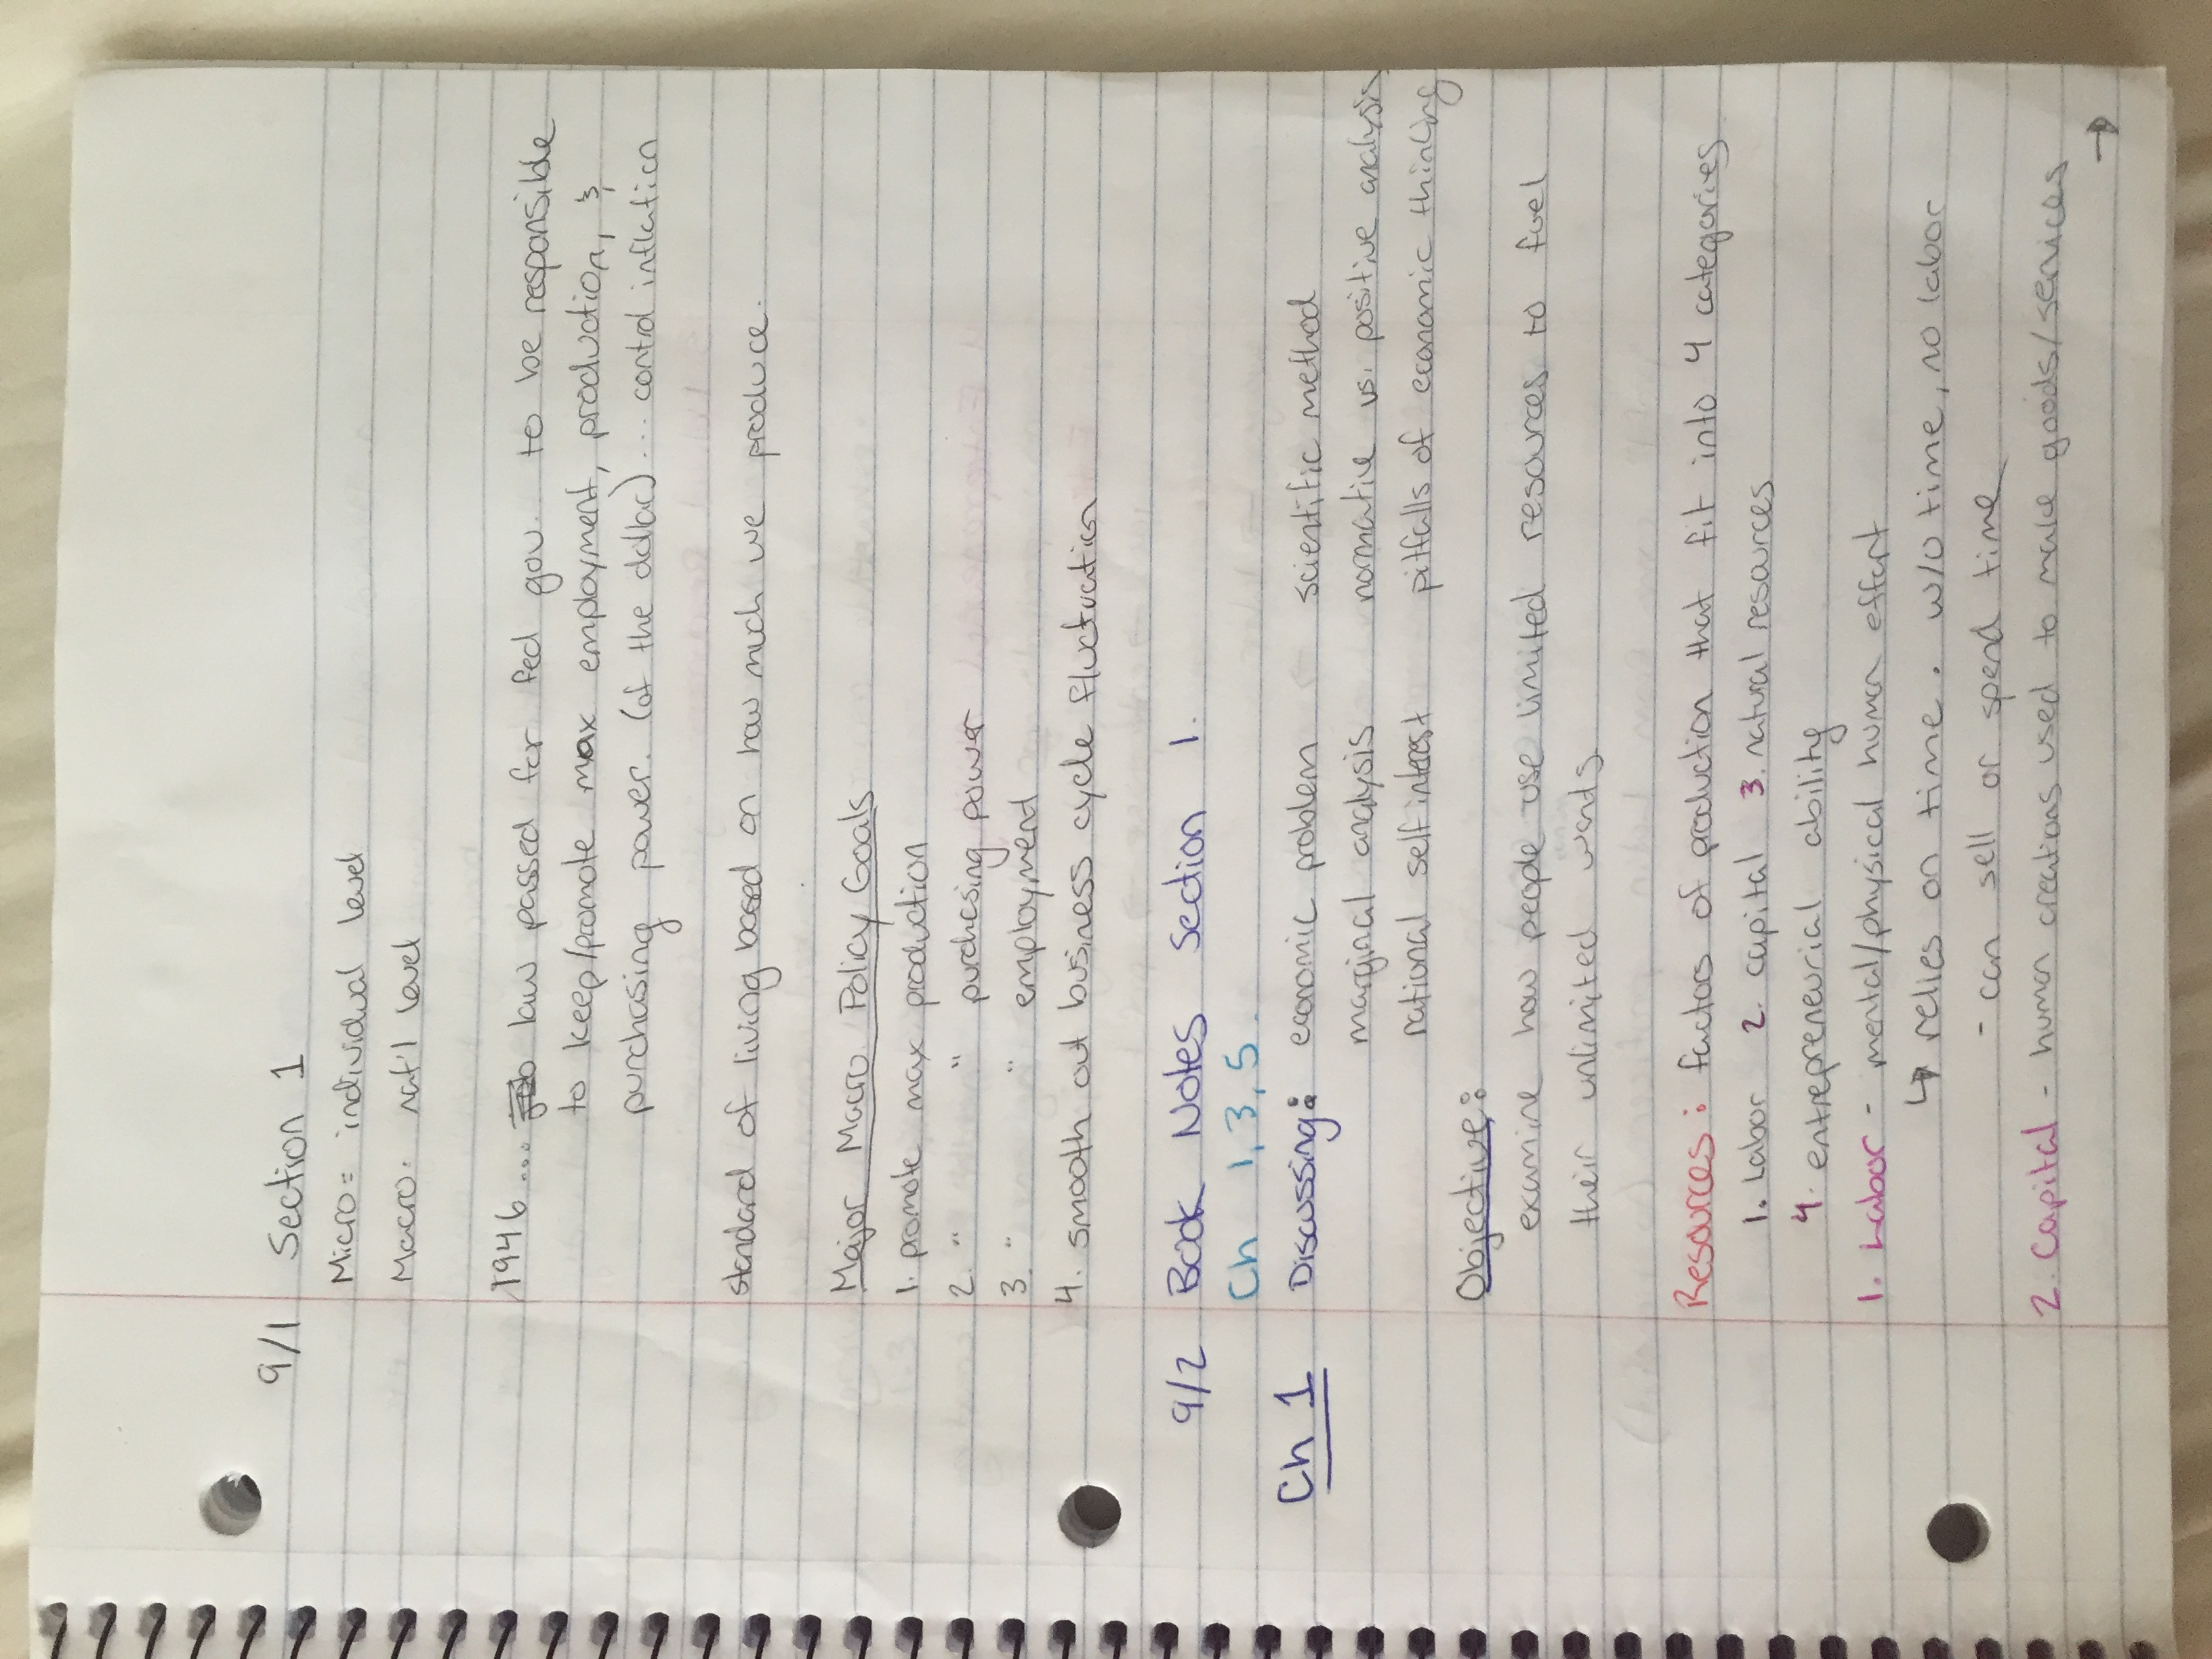 9/1 Section 1
Micro = individual level
Macro: nat'l level
1946.... law passed for fed gov. to be responsible
to keep/promote max employment, production, &
purchasing power. (of the dollar)... control inflation
standard of living based on how much we produce.
Major Macro Policy Goals
1. promote max production
2. " " purchasing power
3. " " employment
4. smooth out business cycle fluctuation
9/2 Book Notes Section 1.
Ch 1, 3, 5.
Ch 1 Discussing: economic problem scientific method
marginal analysis normative vs. positive analysis
rational self interest pitfalls of economic thinking
Objective:
examine how people use limited resources to fuel
their unlimited wants
Resources: factors of production that fit into 4 categories
1. Labor 2. capital 3. natural resources
4. entrepreneurial ability
1. Labor - mental/physical human effort
↳ relies on time. w/o time, no labor
- can sell or spend time
2. Capital - human creations used to make goods/services
→